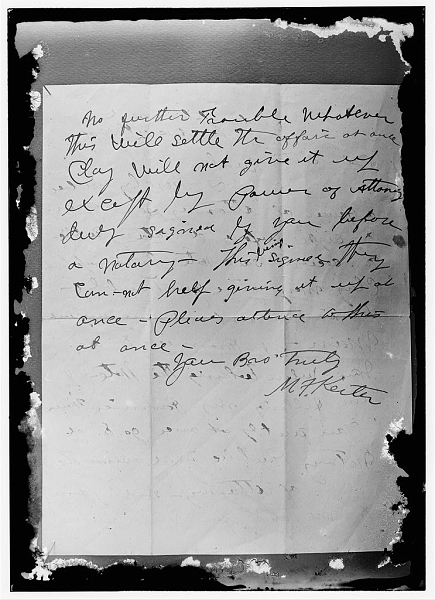 No further Trouble Whatever
This Will settle the affair at once
Clay Will not give it up
except by power of Attorney
duly signed by you before
a notary - This signed - they
Can-not help giving it up at
once - Pleas attend to this
at once -
Your Bro Truly
M F Keiter